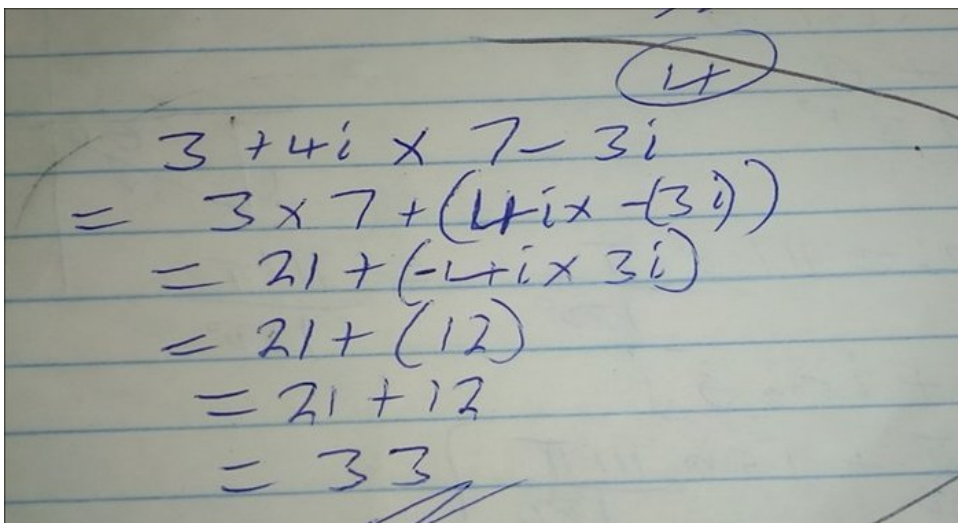 4
3 + 4i × 7 - 3i
= 3 × 7 + (4i × -(3i))
= 21 + (-4i × 3i)
= 21 + (12)
= 21 + 12
= 33